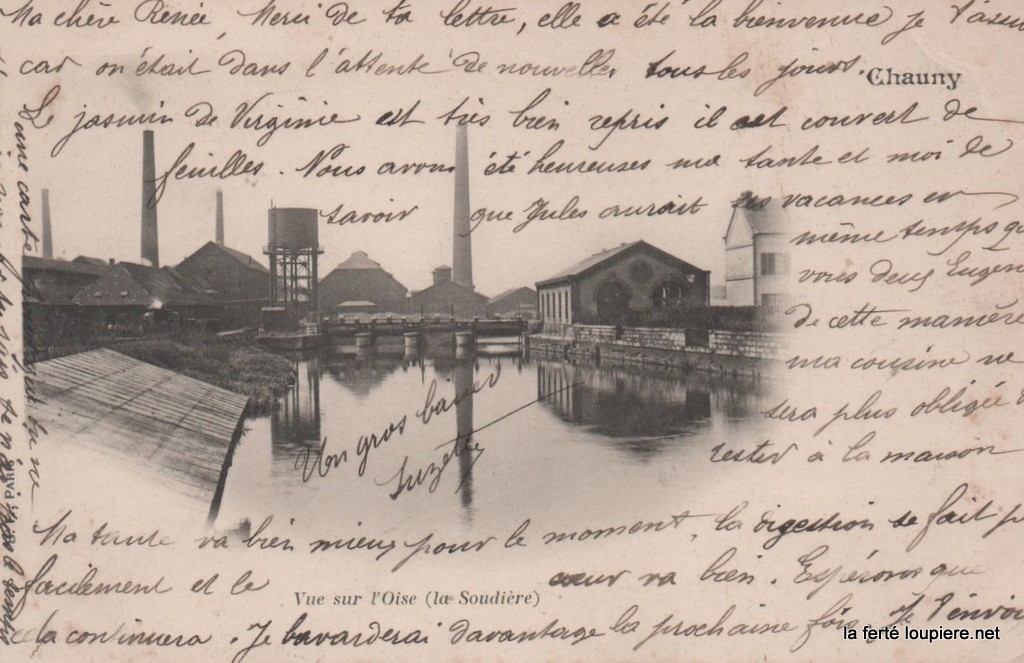 Ma chère Renée Merci de ta lettre, elle a été la bienvenue je t'assure
car on était dans l'attente de nouvelles tous les jours.
Chauny
Le jasmin de Virginie est très bien repris il est couvert de
feuilles. Nous avons été heureuses ma tante et moi de
savoir que Jules aurait ses vacances en
même temps que
vous deux Eugénie
de cette manière
ma cousine ne
sera plus obligée
rester à la maison
Un gros baiser
Suzette
Ma tante va bien mieux pour le moment, la digestion se fait
facilement et le cœur va bien. Espérons que
Vue sur l'Oise (la Soudière)
cela continuera. Je bavarderai davantage la prochaine fois, Je t'envoie
une carte
je n'ai pas le temps
la ferté loupiere.net